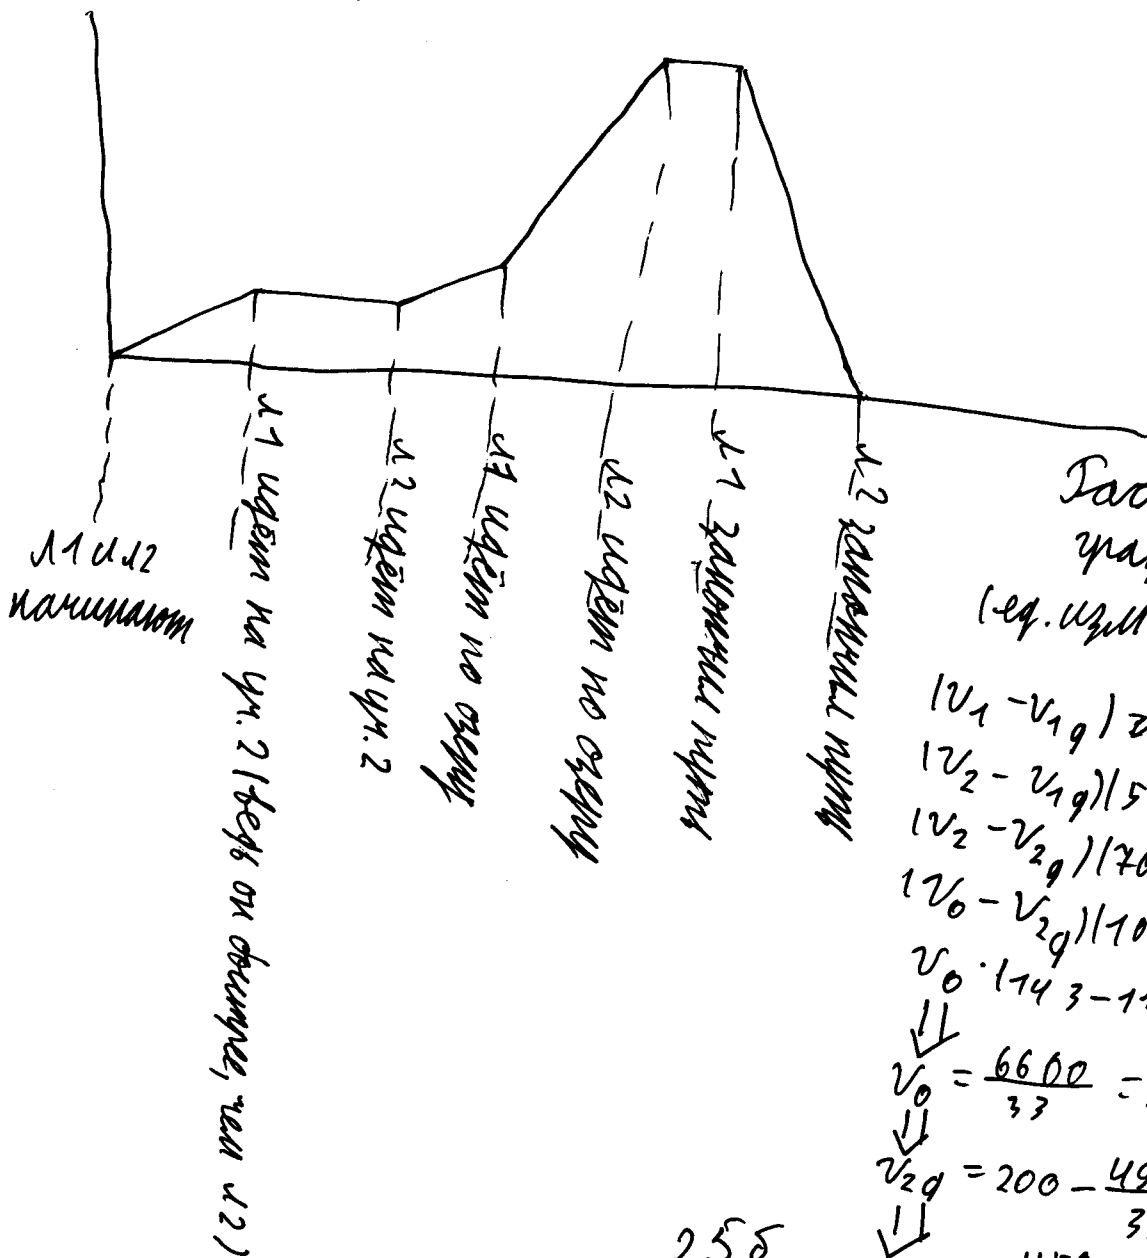 л1 и л2
начинают
л1 идёт на уч. 2 (ведь он быстрее, чем л2)
л2 идёт на уч. 2
л1 идёт по озеру
л2 идёт по озеру
л1 закончил путь
л2 закончил путь
(ед. изм
(v₁ - v₁g)
(v₂ - v₁g)(5
(v₂ - v₂g)(70
(v₀ - v₂g)(10
v₀ · (143 - 11
⇓
v₀ = 6600/33 =
⇓
v₂g = 200 - 49/3
⇓
255